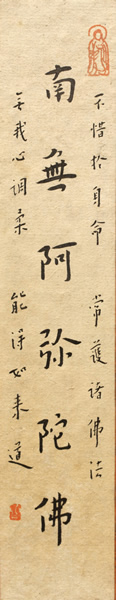 不惜於自命 常護諸佛法
南無阿弥陀佛
無我心調柔 能得如来道